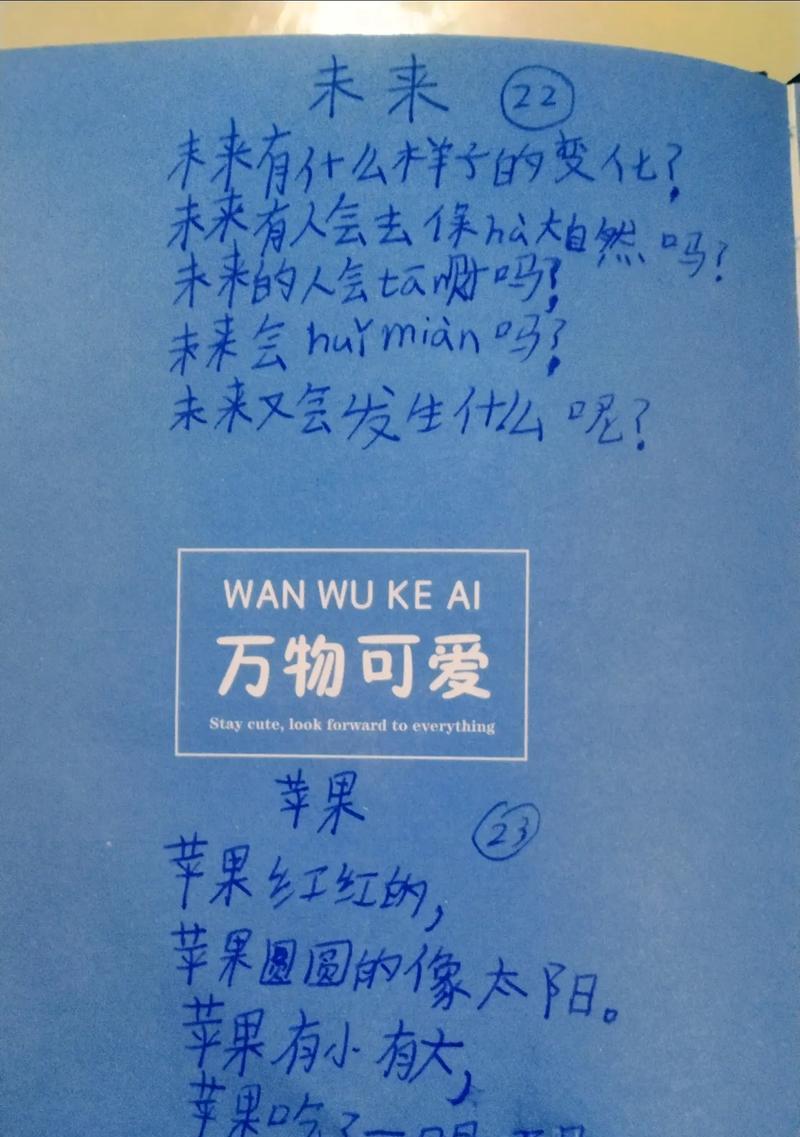 未来 22
未来有什么样子的变化?
未来有人会去保hù大自然吗?
未来的人会 吗?
未来会huǐmiàn吗?
未来又会发生什么呢?
WAN WU KE AI
万物可爱
Stay cute, look forward to everything
苹果
23
苹果红红的,
苹果圆圆的像太阳。
苹果有小有大,
苹果吃了一口